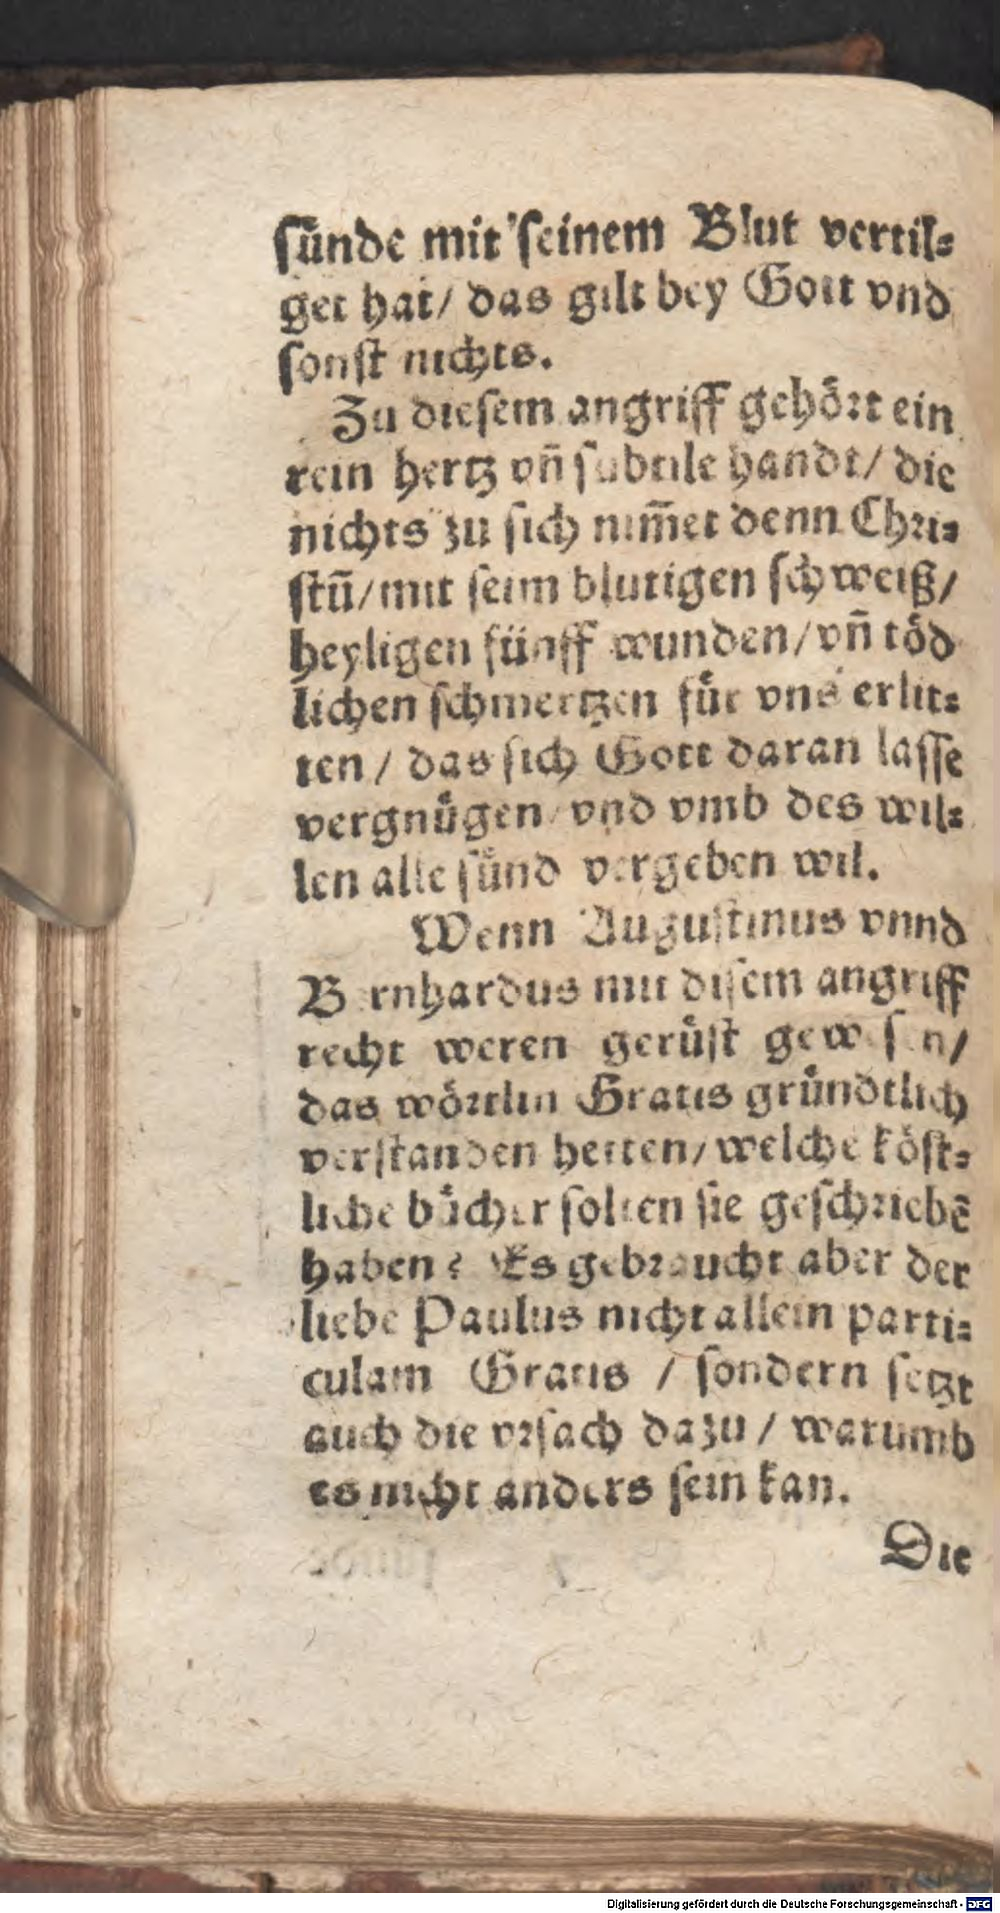 ſünde mit ſeinem Blut vertil⸗
get hat/ das gilt bey Gott vnd
ſonſt nichts.
Zu dieſem angriff gehöꝛt ein
rein hertz vn̄ ſubtile handt/ die
nichts zu ſich nim̄et denn Chꝛi⸗
ſtū/ mit ſeim blutigen ſchweiß/
heyligen fünff wunden/ vn̄ töd
lichen ſchmertzen für vns erlit⸗
ten / das ſich Gott daran laſſe
vergnügen/ vnd vmb des wil⸗
len alle ſünd vergeben wil.
Wenn Auguſtinus vnnd
Bernhardus mit diſem angriff
recht weren gerüſt geweſen/
das wöꝛtlin Gratis gründtlich
verſtanden hetten/ welche köſt⸗
liche bücher ſolten ſie geſchꝛiebē
haben? Es gebꝛaucht aber der
liebe Paulus nicht allein parti⸗
culam Gratis / ſondern ſetzt
auch die vꝛſach dazu / warumb
es nicht anders ſein kan.
Die
Digitalisierung gefördert durch die Deutsche Forschungsgemeinschaft - DFG